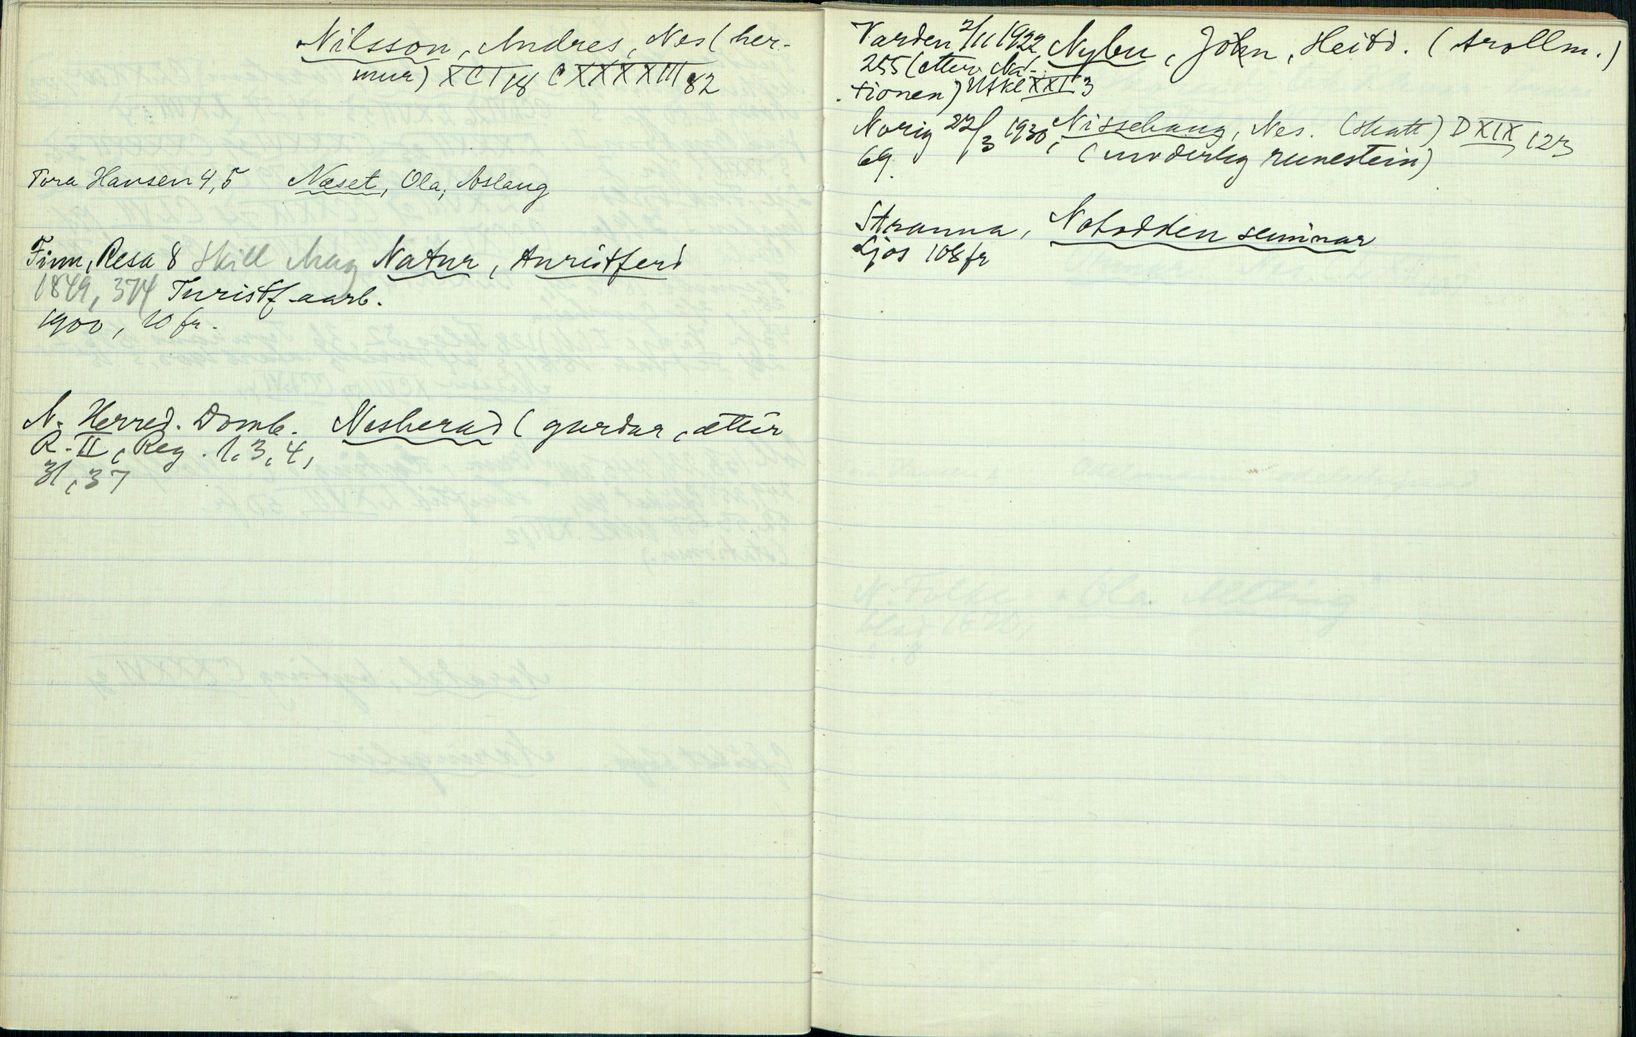 Nilsson, Andres, Nes (her-
mur) XCI 18 CXXXXIII 82
Tora Hansen 4, 5 Næset, Ola, Aslaug
Finn, Resa 8 Skill Mag Natur, turistferd
1849, 374 Turistf aarb.
1900, 10 fr.
N. Herred. Domb. Nesherad (gardar, ættir
R. II, Reg. 1, 3, 4,
31, 37
Varden 2/11 1922 Nybu, John, Heidd. (trollm.)
255 (etter Na-
tionen) Utkl XXI 3
Norig 22/3 1930, Nissehaug, Nes. (skatt) D XIX, 123
69. (underleg runestein)
Stranna, Notodden seminar
Ljos 108 fr